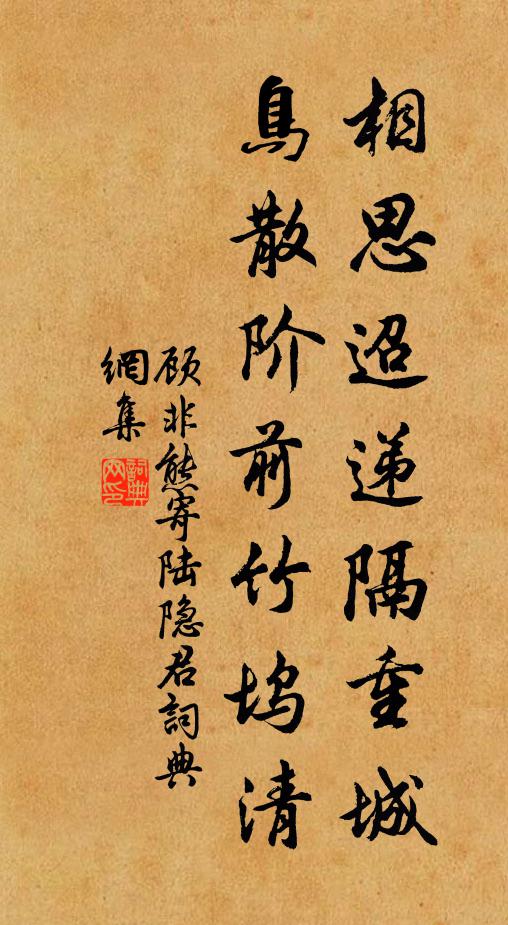 相思迢递隔重城
鳥散阶前竹坞清
顾非熊寄陆隐君詞典
網集
詞典
网印